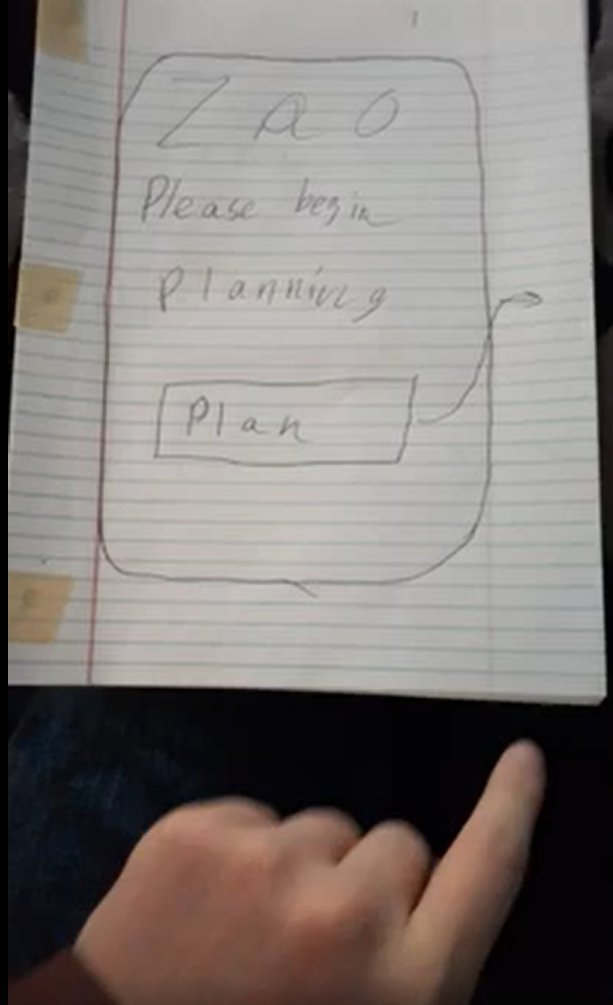 Zao
Please begin
Planning
Plan